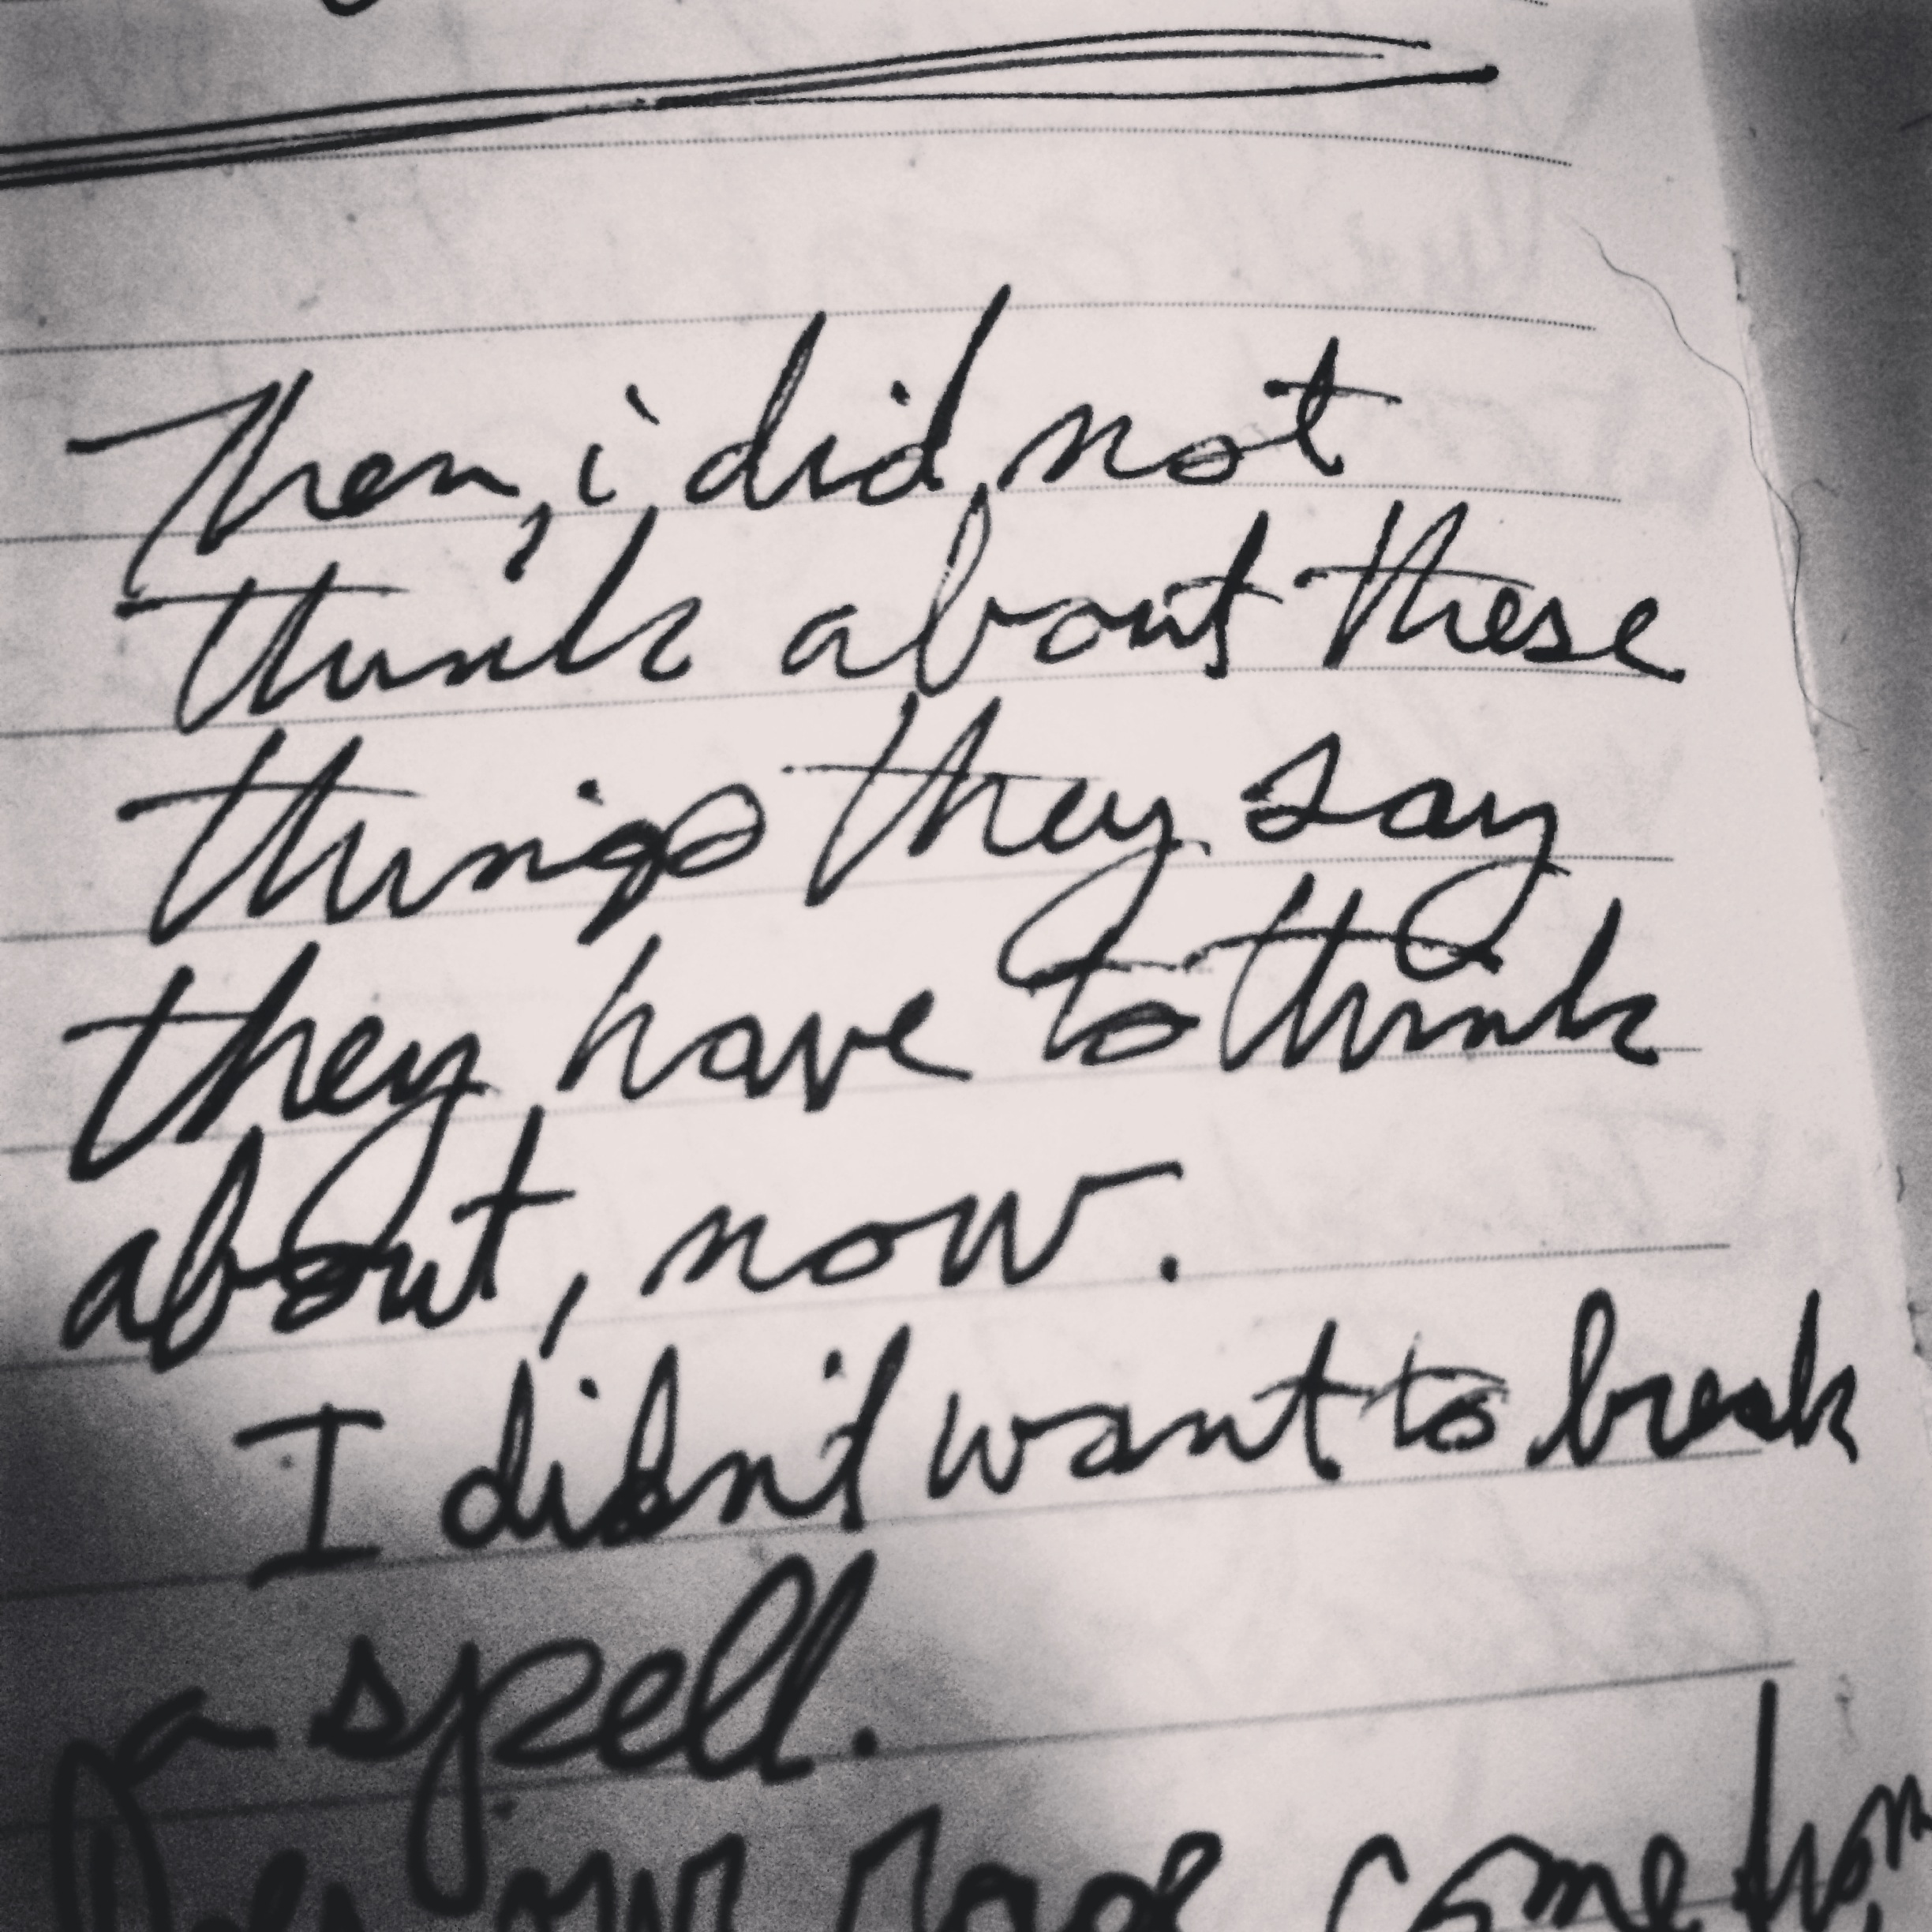 Then, i did not
think about these
things they say
they have to think
about, now.
I didn't want to break
a spell.
come